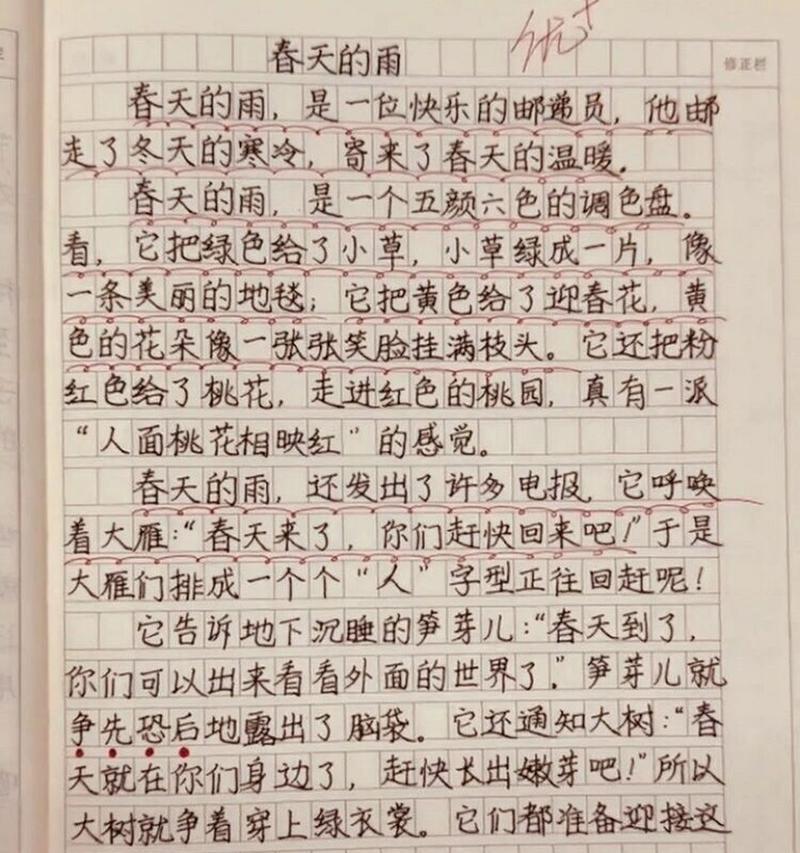 优+
春天的雨
修正栏
春天的雨，是一位快乐的邮递员，他邮
走了冬天的寒冷，寄来了春天的温暖。
春天的雨，是一个五颜六色的调色盘。
看，它把绿色给了小草，小草绿成一片，像
一条美丽的地毯；它把黄色给了迎春花，黄
色的花朵像一张张笑脸挂满枝头。它还把粉
红色给了桃花，走进红色的桃园，真有一派
“人面桃花相映红”的感觉。
春天的雨，还发出了许多电报，它呼唤
着大雁：“春天来了，你们赶快回来吧！”于是
大雁们排成一个个“人”字型正往回赶呢！
它告诉地下沉睡的笋芽儿：“春天到了，
你们可以出来看看外面的世界了。”笋芽儿就
争先恐后地露出了脑袋。它还通知大树：“春
天就在你们身边了，赶快长出嫩芽吧！”所以
大树就争着穿上绿衣裳。它们都准备迎接这